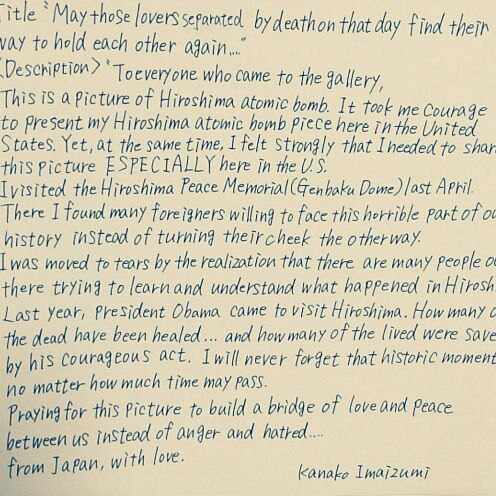 Title "May those lovers separated by death on that day find their
way to hold each other again...."
<Description> "To everyone who came to the gallery,
This is a picture of Hiroshima atomic bomb. It took me courage
to present my Hiroshima atomic bomb piece here in the United
States. Yet, at the same time, I felt strongly that I needed to shar
this picture ESPECIALLY here in the U.S.
I visited the Hiroshima Peace Memorial (Genbaku Dome) last April.
There I found many foreigners willing to face this horrible part of ou
history instead of turning their cheek the other way.
I was moved to tears by the realization that there are many people o
there trying to learn and understand what happened in Hirosh
Last year, President Obama came to visit Hiroshima. How many o
the dead have been healed... and how many of the lived were save
by his courageous act. I will never forget that historic moment
no matter how much time may pass.
Praying for this picture to build a bridge of love and peace
between us instead of anger and hatred....
from Japan, with love.
Kanako Imaizumi